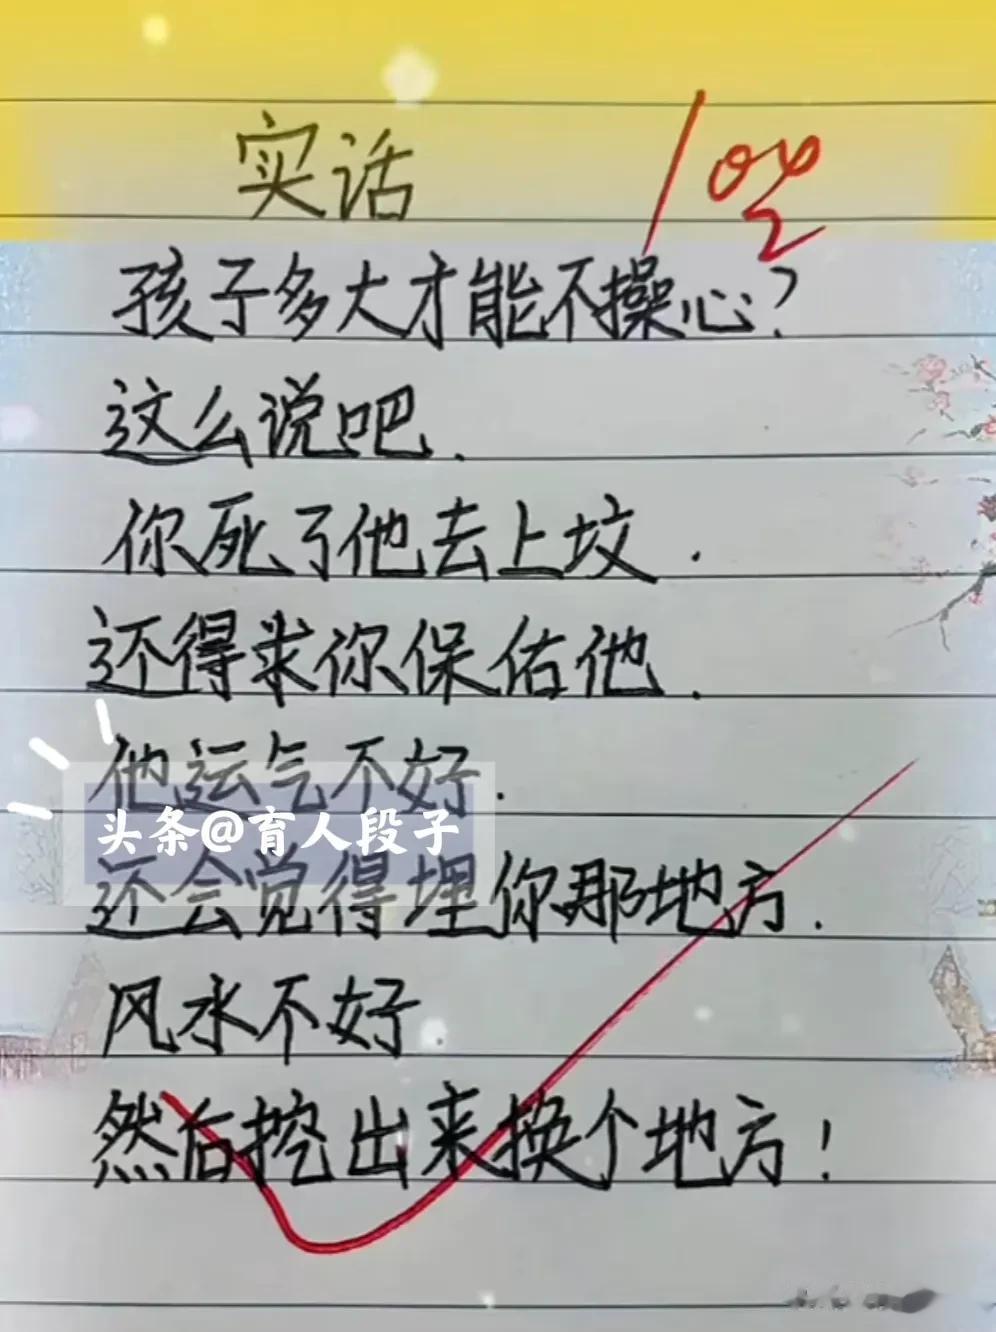 实话
100
孩子多大才能不操心?
这么说吧.
你死了他去上坟.
还得求你保佑他.
他运气不好.
头条@育人段子
还会觉得埋你那地方.
风水不好.
然后挖出来换个地方!